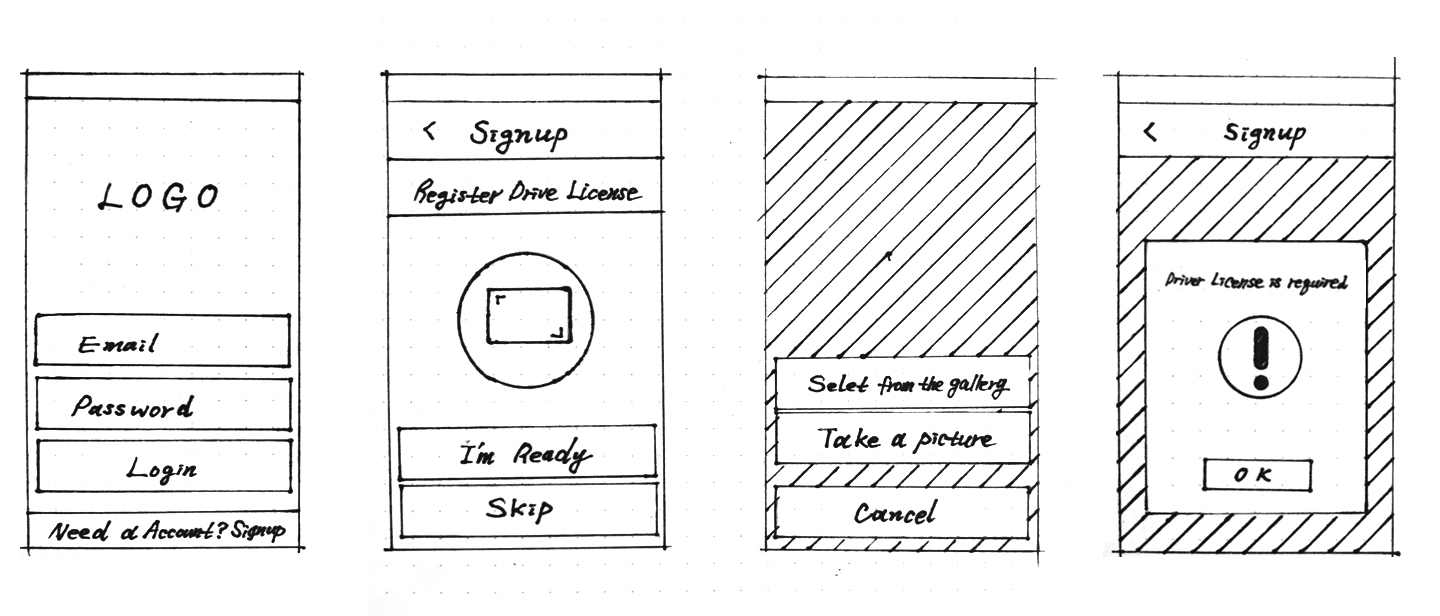 LOGO
Email
Password
Login
Need a Account? Signup
< Signup
Register Drive License
I'm Ready
Skip
Selet from the gallery
Take a picture
Cancel
< Signup
Driver License is required
!
OK